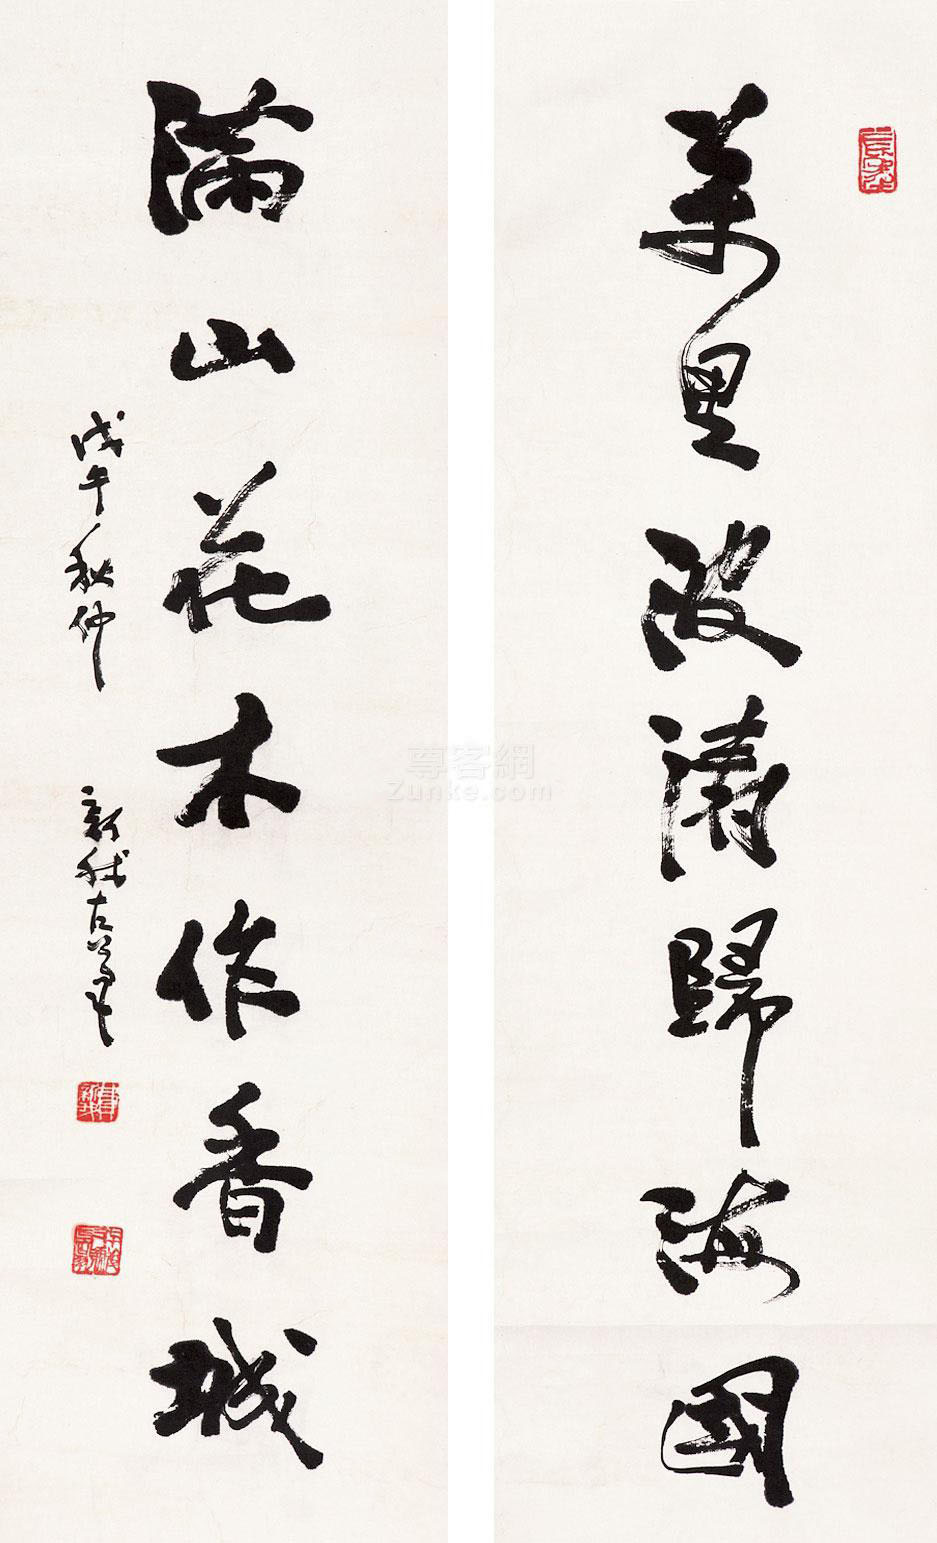 萬里波濤歸海國
滿山花木作香城
戊午秋仲
尊客網
Zunke.com